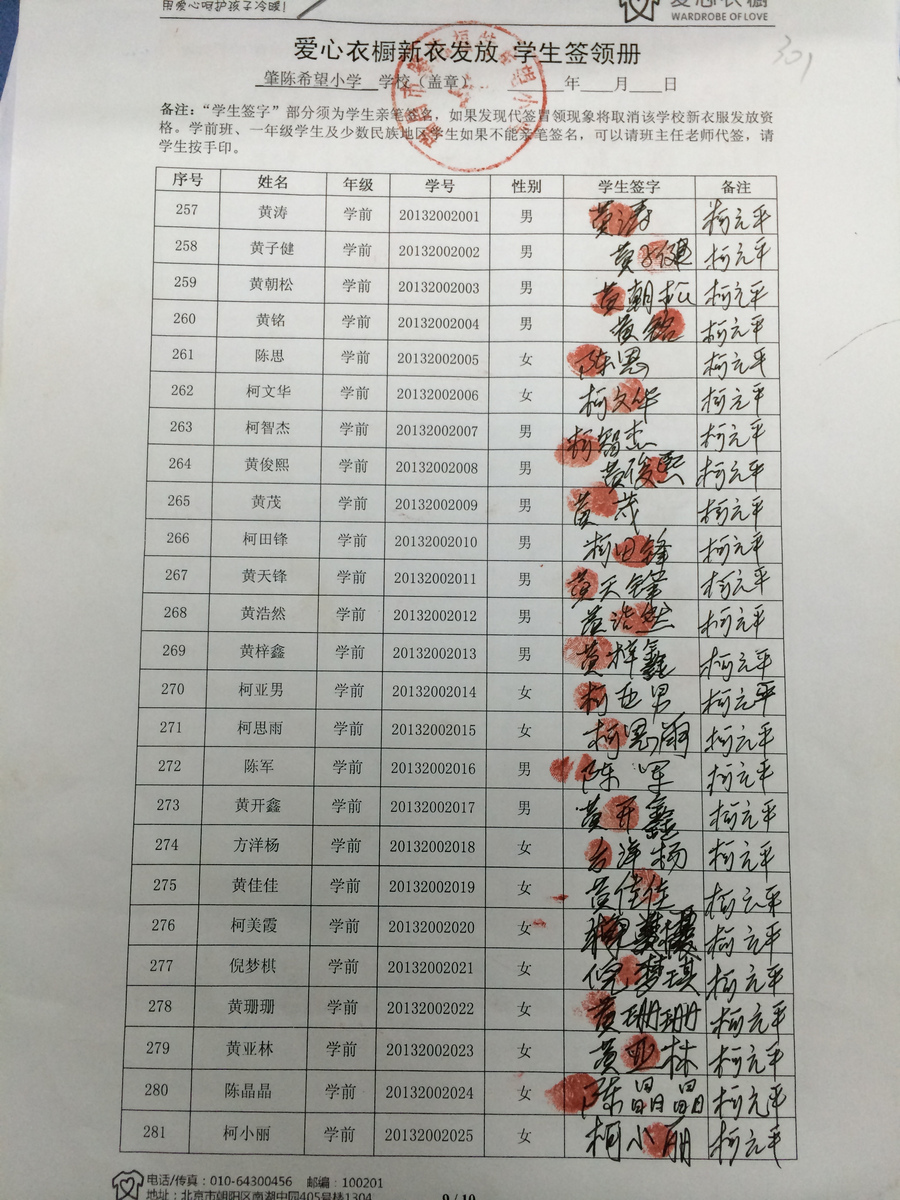 用爱心呵护孩子冷暖!
爱心衣橱
WARDROBE OF LOVE
301
爱心衣橱新衣发放 学生签领册
肇陈希望小学 学校(盖章) 年 月 日
备注:“学生签字”部分须为学生亲笔签名,如果发现代签冒领现象将取消该学校新衣服发放资
格。学前班、一年级学生及少数民族地区学生如果不能亲笔签名,可以请班主任老师代签,请
学生按手印。
序号 姓名 年级 学号 性别 学生签字 备注
257 黄涛 学前 20132002001 男 黄涛 柯元平
258 黄子健 学前 20132002002 男 黄子健 柯元平
259 黄朝松 学前 20132002003 男 黄朝松 柯元平
260 黄铭 学前 20132002004 男 黄铭 柯元平
261 陈思 学前 20132002005 女 陈思 柯元平
262 柯文华 学前 20132002006 女 柯文华 柯元平
263 柯智杰 学前 20132002007 男 柯智杰 柯元平
264 黄俊熙 学前 20132002008 男 黄俊熙 柯元平
265 黄茂 学前 20132002009 男 黄茂 柯元平
266 柯田锋 学前 20132002010 男 柯田锋 柯元平
267 黄天锋 学前 20132002011 男 黄天锋 柯元平
268 黄浩然 学前 20132002012 男 黄浩然 柯元平
269 黄梓鑫 学前 20132002013 男 黄梓鑫 柯元平
270 柯亚男 学前 20132002014 女 柯亚男 柯元平
271 柯思雨 学前 20132002015 女 柯思雨 柯元平
272 陈军 学前 20132002016 男 陈军 柯元平
273 黄开鑫 学前 20132002017 男 黄开鑫 柯元平
274 方洋杨 学前 20132002018 女 方洋杨 柯元平
275 黄佳佳 学前 20132002019 女 黄佳佳 柯元平
276 柯美霞 学前 20132002020 女 柯美霞 柯元平
277 倪梦棋 学前 20132002021 女 倪梦琪 柯元平
278 黄珊珊 学前 20132002022 女 黄珊珊 柯元平
279 黄亚林 学前 20132002023 女 黄亚林 柯元平
280 陈晶晶 学前 20132002024 女 陈晶晶 柯元平
281 柯小丽 学前 20132002025 女 柯小丽 柯元平
电话/传真:010-64300456 邮编:100201
地址:北京市朝阳区南湖中园405号楼1304
9 / 10